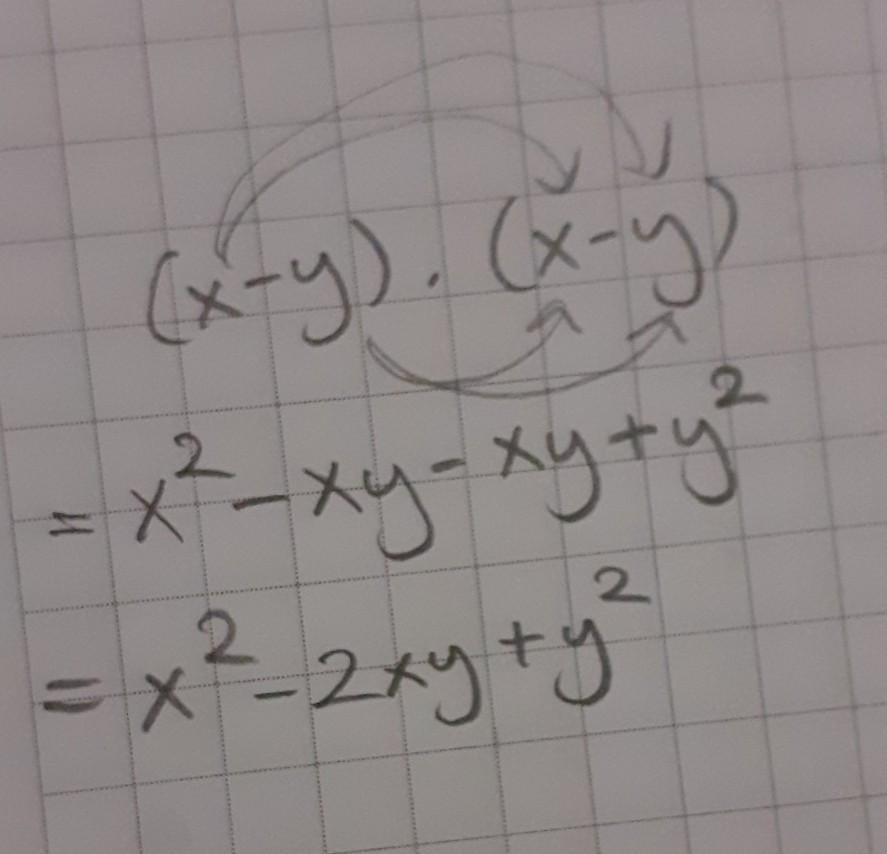 (x-y) . (x-y)
= x² - xy - xy + y²
= x² - 2xy + y²